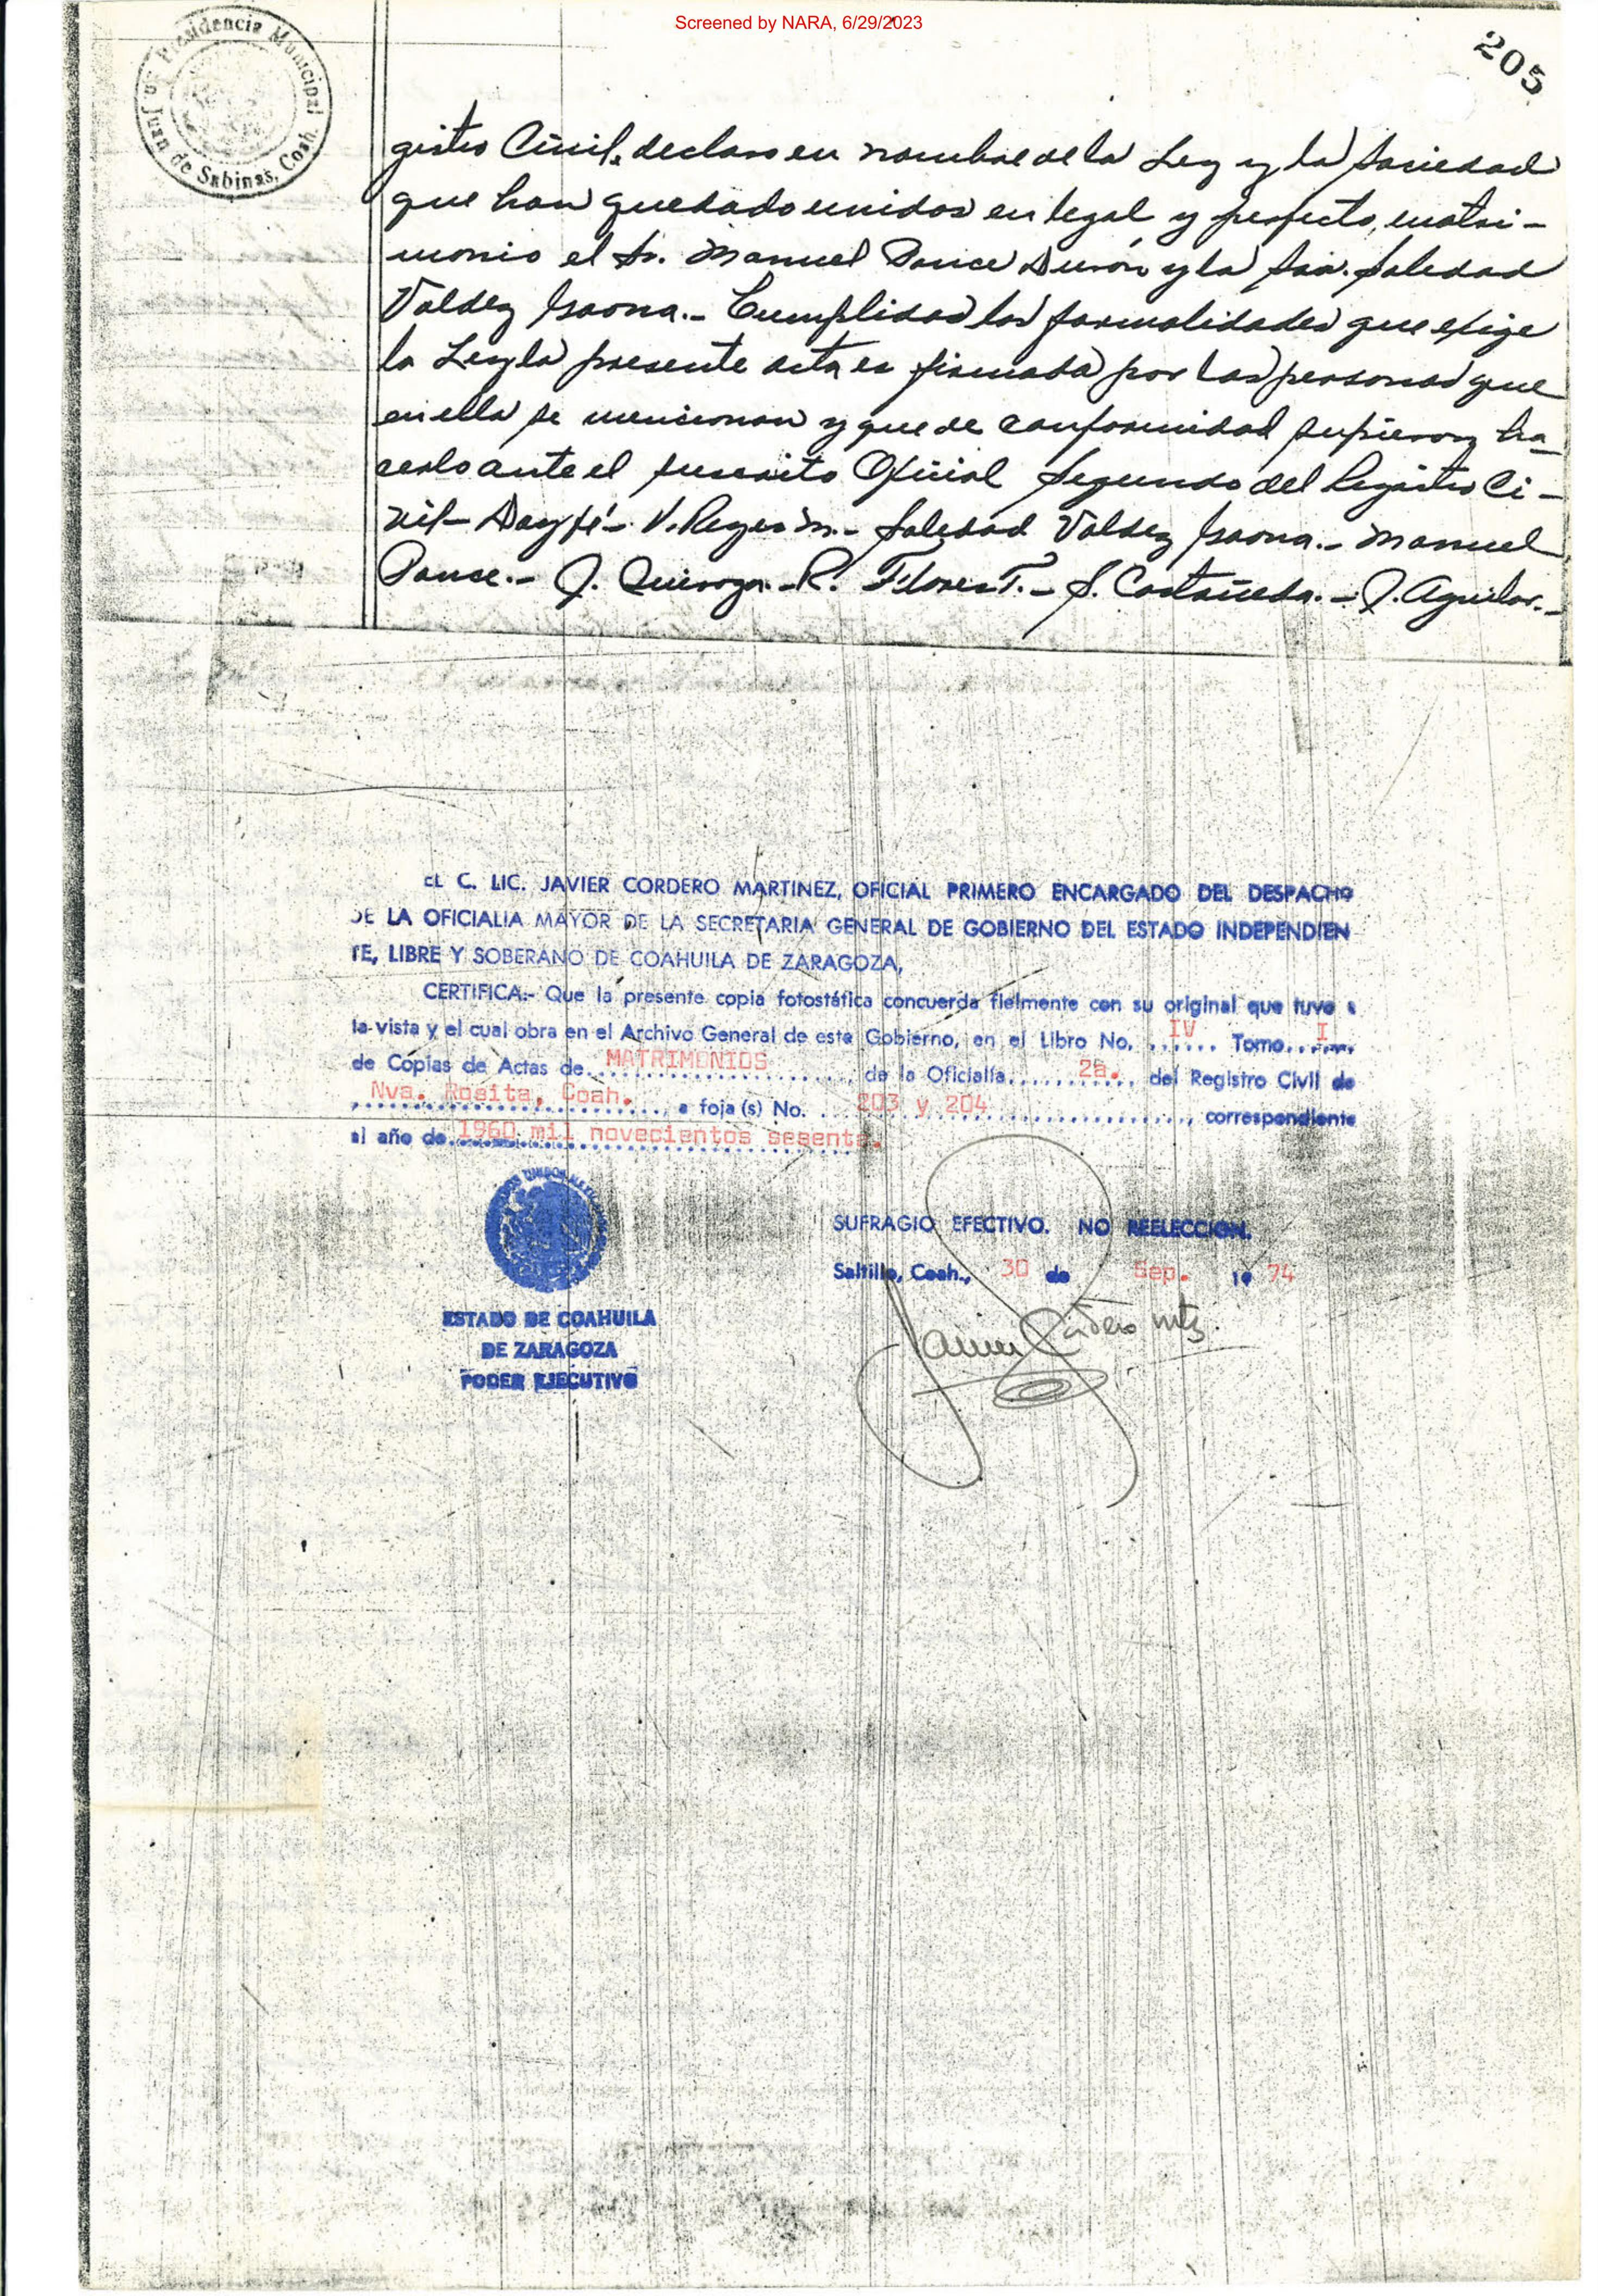 Screened by NARA, 6/29/2023
205
Presidencia Municipal
Juan de Sabinas, Coah.
gistro Civil, declaro en nombre de la Ley y la Sociedad
que han quedado unidos en legal y perfecto, matri-
monio el Sr. Manuel Ponce Durón y la Srta. Soledad
Valdez Gaona.- Cumplidas las formalidades que exige
la Ley la presente acta es firmada por las personas que
en ella se mencionan y que de conformidad supieron ha-
cerlo ante el suscrito Oficial Segundo del Registro Ci-
vil- Doy fé- V. Reyes M.- Soledad Valdez Gaona.- Manuel
Ponce.- J. Quiroga.- R. Flores T.- S. Castañeda.- J. Aguilar.-
EL C. LIC. JAVIER CORDERO MARTINEZ, OFICIAL PRIMERO ENCARGADO DEL DESPACHO
DE LA OFICIALIA MAYOR DE LA SECRETARIA GENERAL DE GOBIERNO DEL ESTADO INDEPENDIEN
TE, LIBRE Y SOBERANO DE COAHUILA DE ZARAGOZA,
CERTIFICA:- Que la presente copia fotostática concuerda fielmente con su original que tuve a
la vista y el cual obra en el Archivo General de este Gobierno, en el Libro No. IV Tomo I
de Copias de Actas de MATRIMONIOS de la Oficialía 2a. del Registro Civil de
Nva. Rosita, Coah. a foja (s) No. 203 y 204 correspondiente
al año de 1960 mil novecientos sesenta.
SUFRAGIO EFECTIVO. NO REELECCION.
Saltillo, Coah., 30 de Sep. 19 74
Javier Cordero Mtz.
ESTADO DE COAHUILA
DE ZARAGOZA
PODER EJECUTIVO